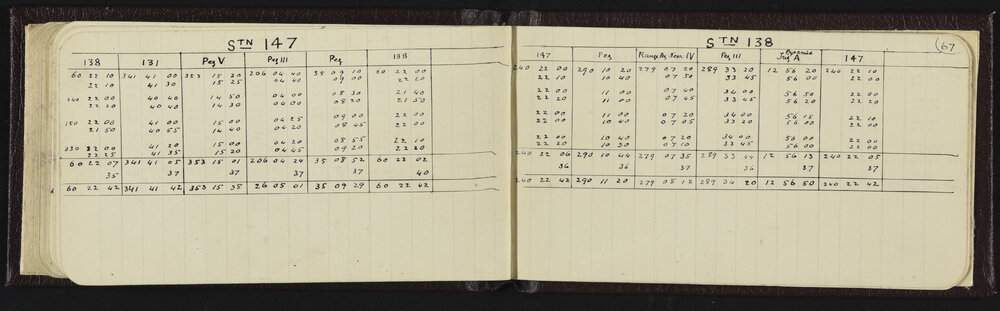 STN 147
138 131 Peg V Peg III Peg 138
60 22 10 341 41 00 353 15 20 206 04 40 35 09 10 60 22 00
22 10 41 30 15 25 04 40 09 00 22 20
240 22 00 40 40 14 50 04 00 08 30 21 40
22 20 40 40 14 30 04 00 08 20 21 50
150 22 00 41 00 15 00 04 25 09 00 22 00
21 50 40 55 14 40 04 20 08 45 22 00
330 22 00 41 20 15 00 04 20 08 55 22 10
22 25 41 35 15 20 04 45 09 20 22 20
60 22 07 341 41 05 353 15 01 206 04 24 35 08 52 60 22 02
35 37 37 37 37 40
60 22 42 341 41 42 353 15 35 26 05 01 35 09 29 60 22 42
STN 138
67
147 Peg Peg IV Peg III Pyramid A 147
240 22 00 290 10 20 279 07 20 289 33 20 12 56 20 240 22 10
22 10 10 40 07 50 33 45 56 00 22 00
22 00 11 00 07 40 34 00 56 50 22 00
22 20 11 00 07 45 33 45 56 20 22 10
22 00 11 00 07 20 34 00 56 15 22 10
22 00 10 40 07 05 33 20 56 00 22 00
22 00 10 40 07 20 34 00 56 00 22 00
22 20 10 30 07 10 33 45 56 00 22 00
240 22 06 290 10 44 279 07 35 289 33 44 12 56 13 240 22 05
36 36 37 36 37 37
240 22 42 290 11 20 279 08 12 289 34 20 12 56 50 240 22 42